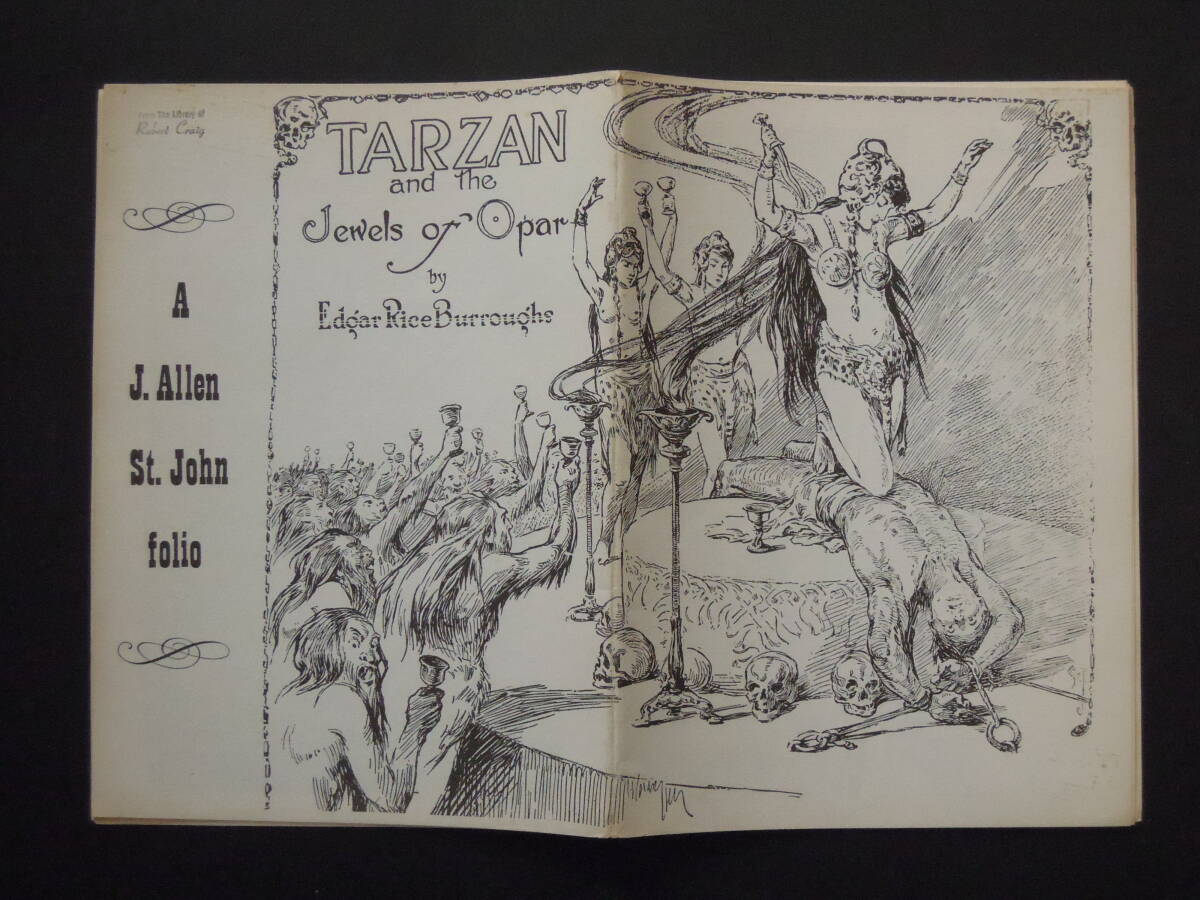 From The Library of
Robert Craig
A
J. Allen
St. John
folio
TARZAN
and the
Jewels of Opar
by
Edgar Rice Burroughs